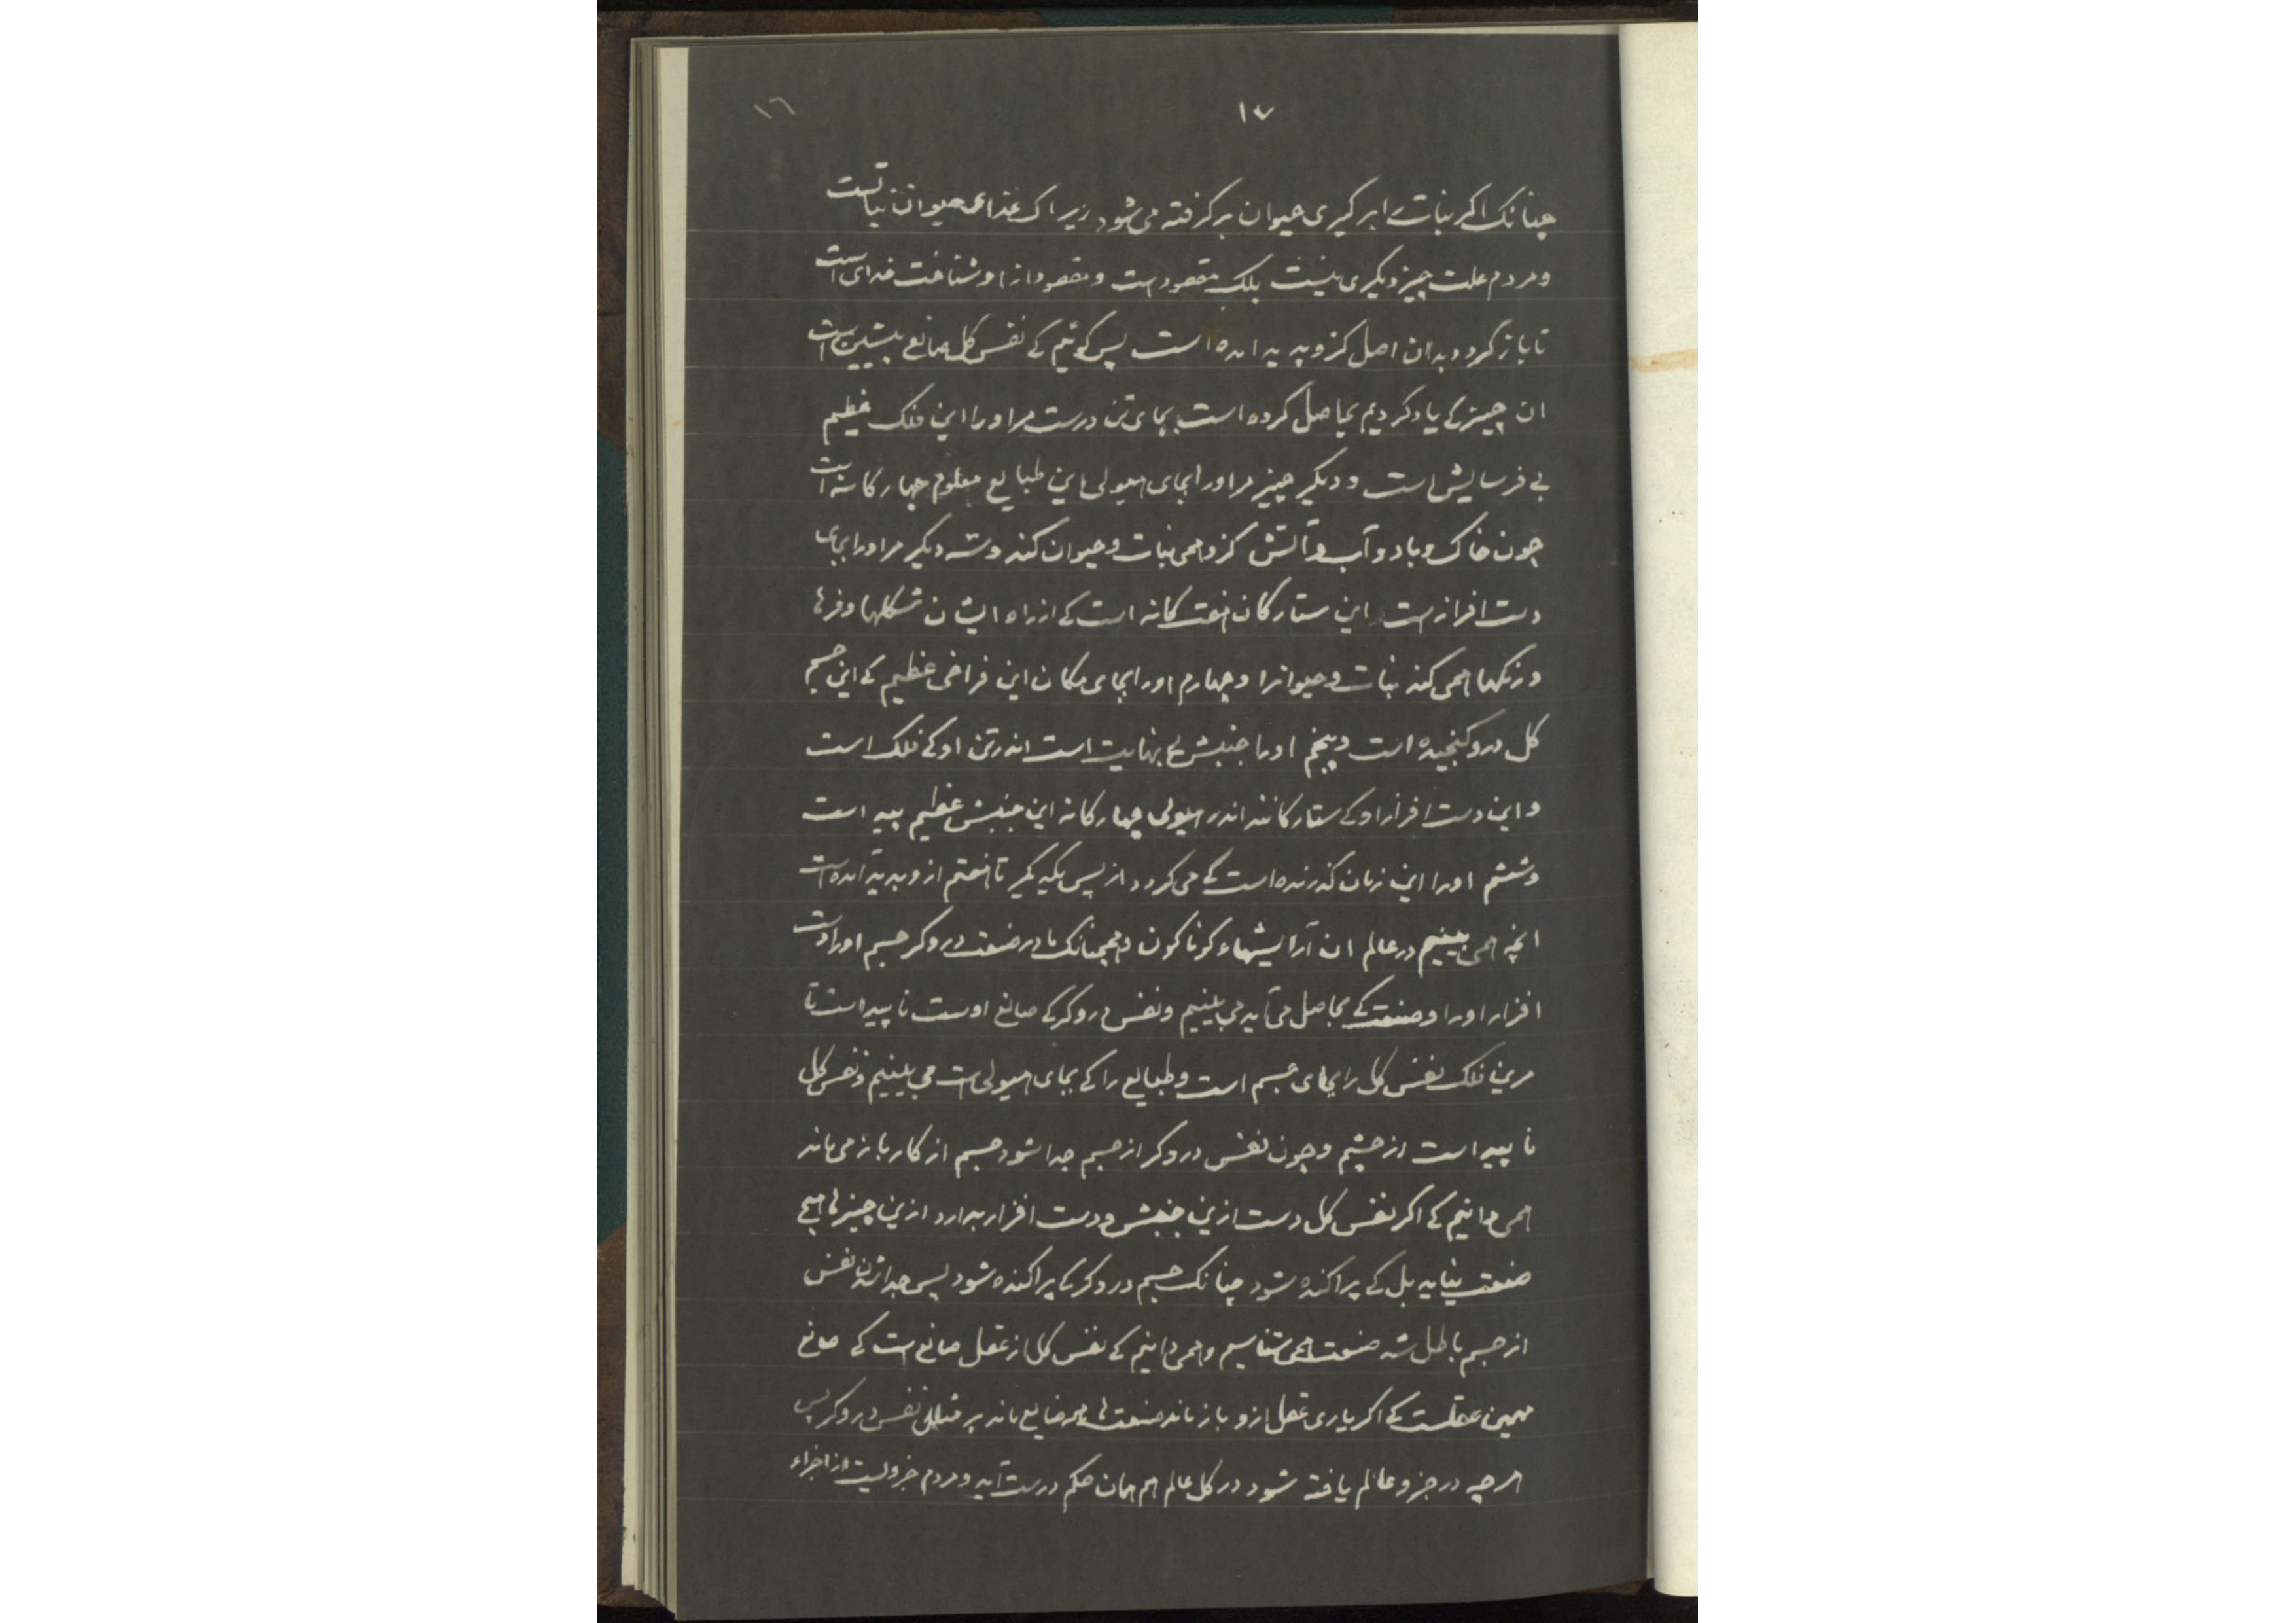 ١٧
١٦
چنانک اکر نبات را بر کیری حیوان بر کرفته می شود زیراک غذای حیوان نباتست
و مردم علت چیز دیکری نیست بلک مقصود است و مقصود ازو شناخت خدای است
تا باز کردد بدان اصل کزو پدید امده است پس کوئیم کے نفس کل صانع پیشین است
ان چیز کے یاد کردیم بحاصل کرده است بجای تن درست مر اورا این فلک عظیم
بی فرسایش است و دیکر چیز مر اورا بجای هیولی این طبایع معلوم چهارکانه است
چون خاک و باد و آب و آتش کزو همی نبات و حیوان کند و سه دیکر مر اورا بجای
دست افزار ست این ستارکان هفت کانه است کے از راه ایشان شکلها و فرها
و رنکها همی کند نبات و حیوانرا و چهارم اورا بجای مکان این فراخی عظیم کے این جسم
کل درو کنجیده است و پنجم اورا جنبش بی نهایت است اندر تن او کے فلک است
و این دست افزار او کے ستارکانند اندر هیولی چهارکانه این جنبش عظیم پیداست
و ششم اورا این زمان کذرنده است کے می کردد از پس یکدیکر تا هفتم ازو پدید آمده است
انچه همی بینیم در عالم ان آرایشهاء کوناکون و همچنانک ما در صنعت دروکر جسم اورا و دست
افزار اورا و صنعت کے بحاصل می آید می بینیم و نفس دروکر کے صانع اوست ناپیداست تا
مرین فلک نفس کل را بجای جسم است و طبایع را کے بجای هیولی است می بینیم و نفس کل
ناپیداست از چشم و چون نفس دروکر از جسم جدا شود جسم از کار باز می ماند
همی دانیم کے اکر نفس کل دست ازین جنبش و دست افزار بدارد ازین چیزها هیچ
صنعت نیاید بل کے پراکنده شود چنانک جسم دروکر کے پراکنده شود پس جدا شدن نفس
از جسم باطل شدن صنعت همی شناسیم و همی دانیم کے نفس کل از عقل صانع است کے صانع
مهمین عقلست کے اکر یاری عقل ازو باز ماند صنعت هاء ضایع ماند بر مثال نفس دروکر پس
هر چه در جزو عالم یافته شود در کل عالم هم همان حکم درست آید و مردم جزویست از اجزاء